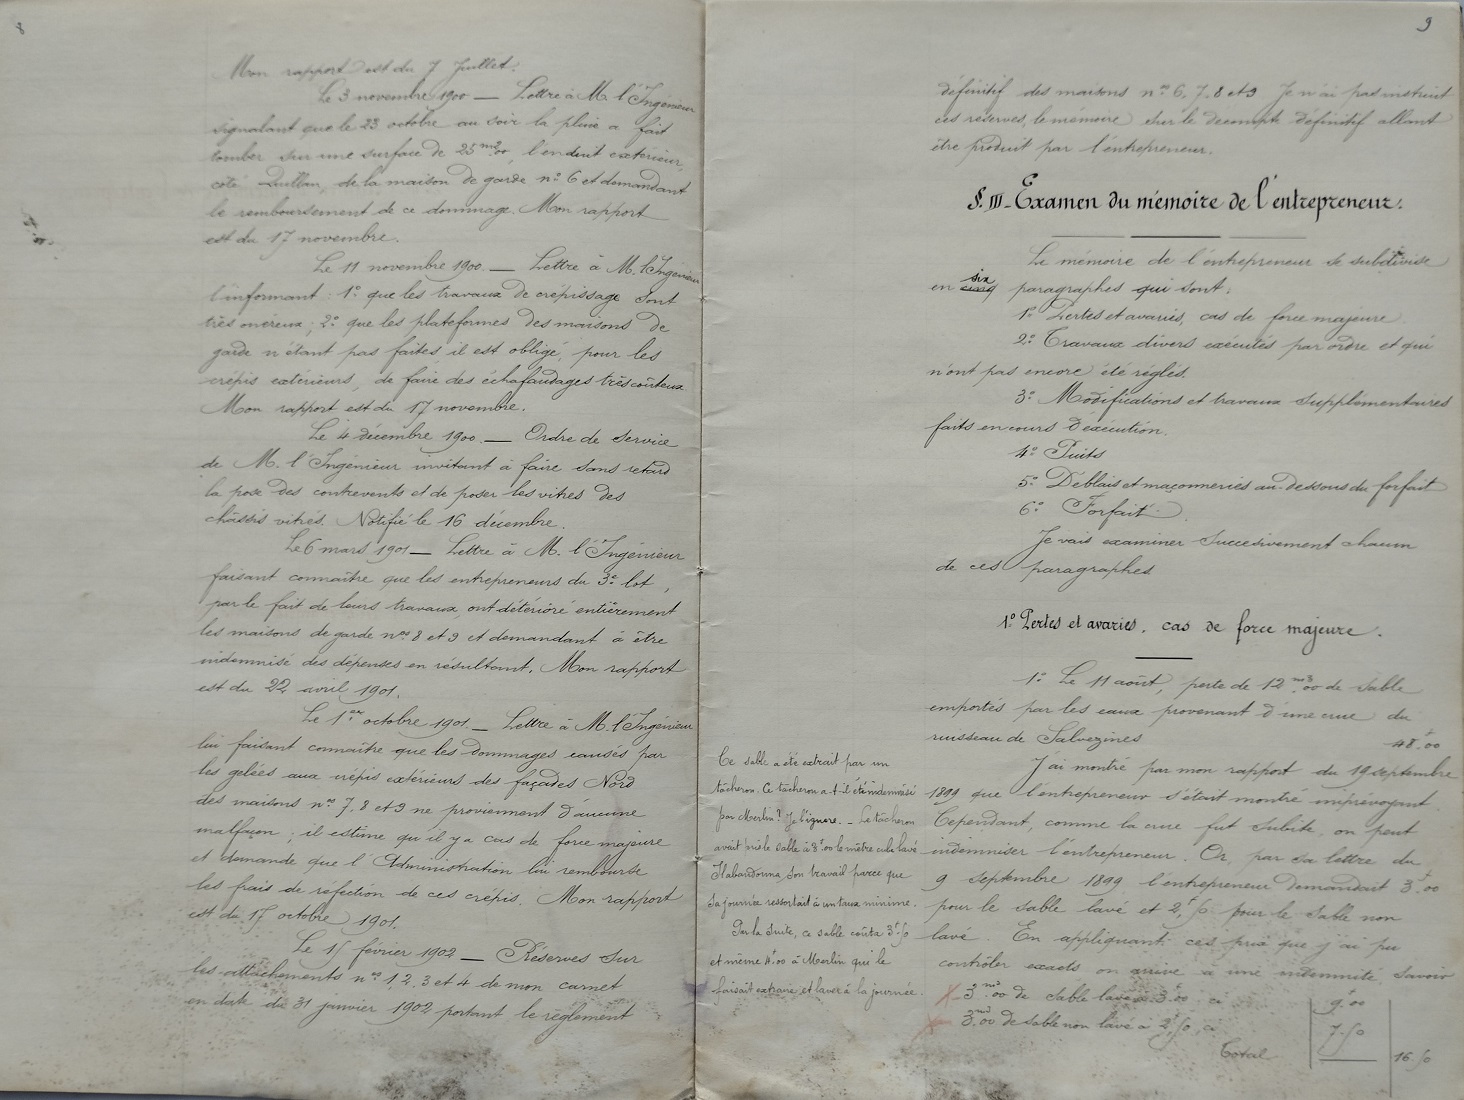 8
Mon rapport est du 7 Juillet.
Le 3 novembre 1900 — Lettre à M. l'Ingénieur
signalant que le 23 octobre au soir la pluie a fait
tomber sur une surface de 25m2,00, l'enduit extérieur,
côté Quillan, de la maison de garde n° 6 et demandant
le remboursement de ce dommage. Mon rapport
est du 17 novembre.
Le 11 novembre 1900. — Lettre à M. l'Ingénieur
l'informant : 1° que les travaux de crépissage sont
très onéreux ; 2° que les plateformes des maisons de
garde n'étant pas faites il est obligé, pour les
crépis extérieurs, de faire des échafaudages très coûteux
Mon rapport est du 17 novembre.
Le 4 décembre 1900. — Ordre de Service
de M. l'Ingénieur invitant à faire sans retard
la pose des contrevents et de poser les vitres des
châssis vitrés. Notifié le 16 décembre.
Le 6 mars 1901 — Lettre à M. l'Ingénieur
faisant connaître que les entrepreneurs du 3e lot,
par le fait de leurs travaux, ont détérioré entièrement
les maisons de garde nos 8 et 9 et demandant à être
indemnisé des dépenses en résultant. Mon rapport
est du 22 avril 1901.
Le 1er octobre 1901 — Lettre à M. l'Ingénieur
lui faisant connaître que les dommages causés par
les gelées aux crépis extérieurs des façades Nord
des maisons nos 7, 8 et 9 ne proviennent d'aucune
malfaçon ; il estime qu'il y a cas de force majeure
et demande que l'Administration lui rembourse
les frais de réfection de ces crépis. Mon rapport
est du 17 octobre 1901.
Le 15 février 1902 — Réserves sur
les attachements nos 1, 2, 3 et 4 de mon carnet
en date du 31 janvier 1902 portant le règlement
9
définitif des maisons nos 6, 7, 8 et 9 Je n'ai pas instruit
ces réserves, le mémoire sur le décompte définitif allant
être produit par l'entrepreneur.
§. III — Examen du mémoire de l'entrepreneur.
Le mémoire de l'entrepreneur se subdivise
six
en cinq paragraphes qui sont :
1° Pertes et avaries, cas de force majeure
2° Travaux divers exécutés par ordre et qui
n'ont pas encore été réglés.
3° Modifications et travaux supplémentaires
faits en cours d'exécution.
4° Puits
5° Déblais et maçonneries au-dessous du forfait
6° Forfait
Je vais examiner successivement chacun
de ces paragraphes
1° Pertes et avaries, cas de force majeure.
1° Le 11 août, perte de 12m3,00 de sable
emportés par les eaux provenant d'une crue du
ruisseau de Salvezines 48f,00
J'ai montré par mon rapport du 19 septembre
1899 que l'entrepreneur s'était montré imprévoyant.
Cependant, comme la crue fut subite, on peut
indemniser l'entrepreneur. Or, par sa lettre du
9 septembre 1899 l'entrepreneur demandait 3f,00
pour le sable lavé et 2f,50 pour le sable non
lavé. En appliquant ces prix que j'ai pu
contrôler exacts on arrive à une indemnité, Savoir
3m3,00 de sable lavé à 3f,00 ci 9f,00
3m3,00 de sable non lavé à 2f,50 ci 7.50
Total 16 50
Ce sable a été extrait par un
tâcheron. Ce tâcheron a-t-il été indemnisé
par Merlin ? Je l'ignore. — Le tâcheron
avait pris le sable à 3f,00 le mètre cube lavé
Il abandonna son travail parce que
sa journée ressortait à un taux minime.
Par la suite, ce sable coûta 3f,50
et même 4f,00 à Merlin qui le
faisait extraire et laver à la journée.